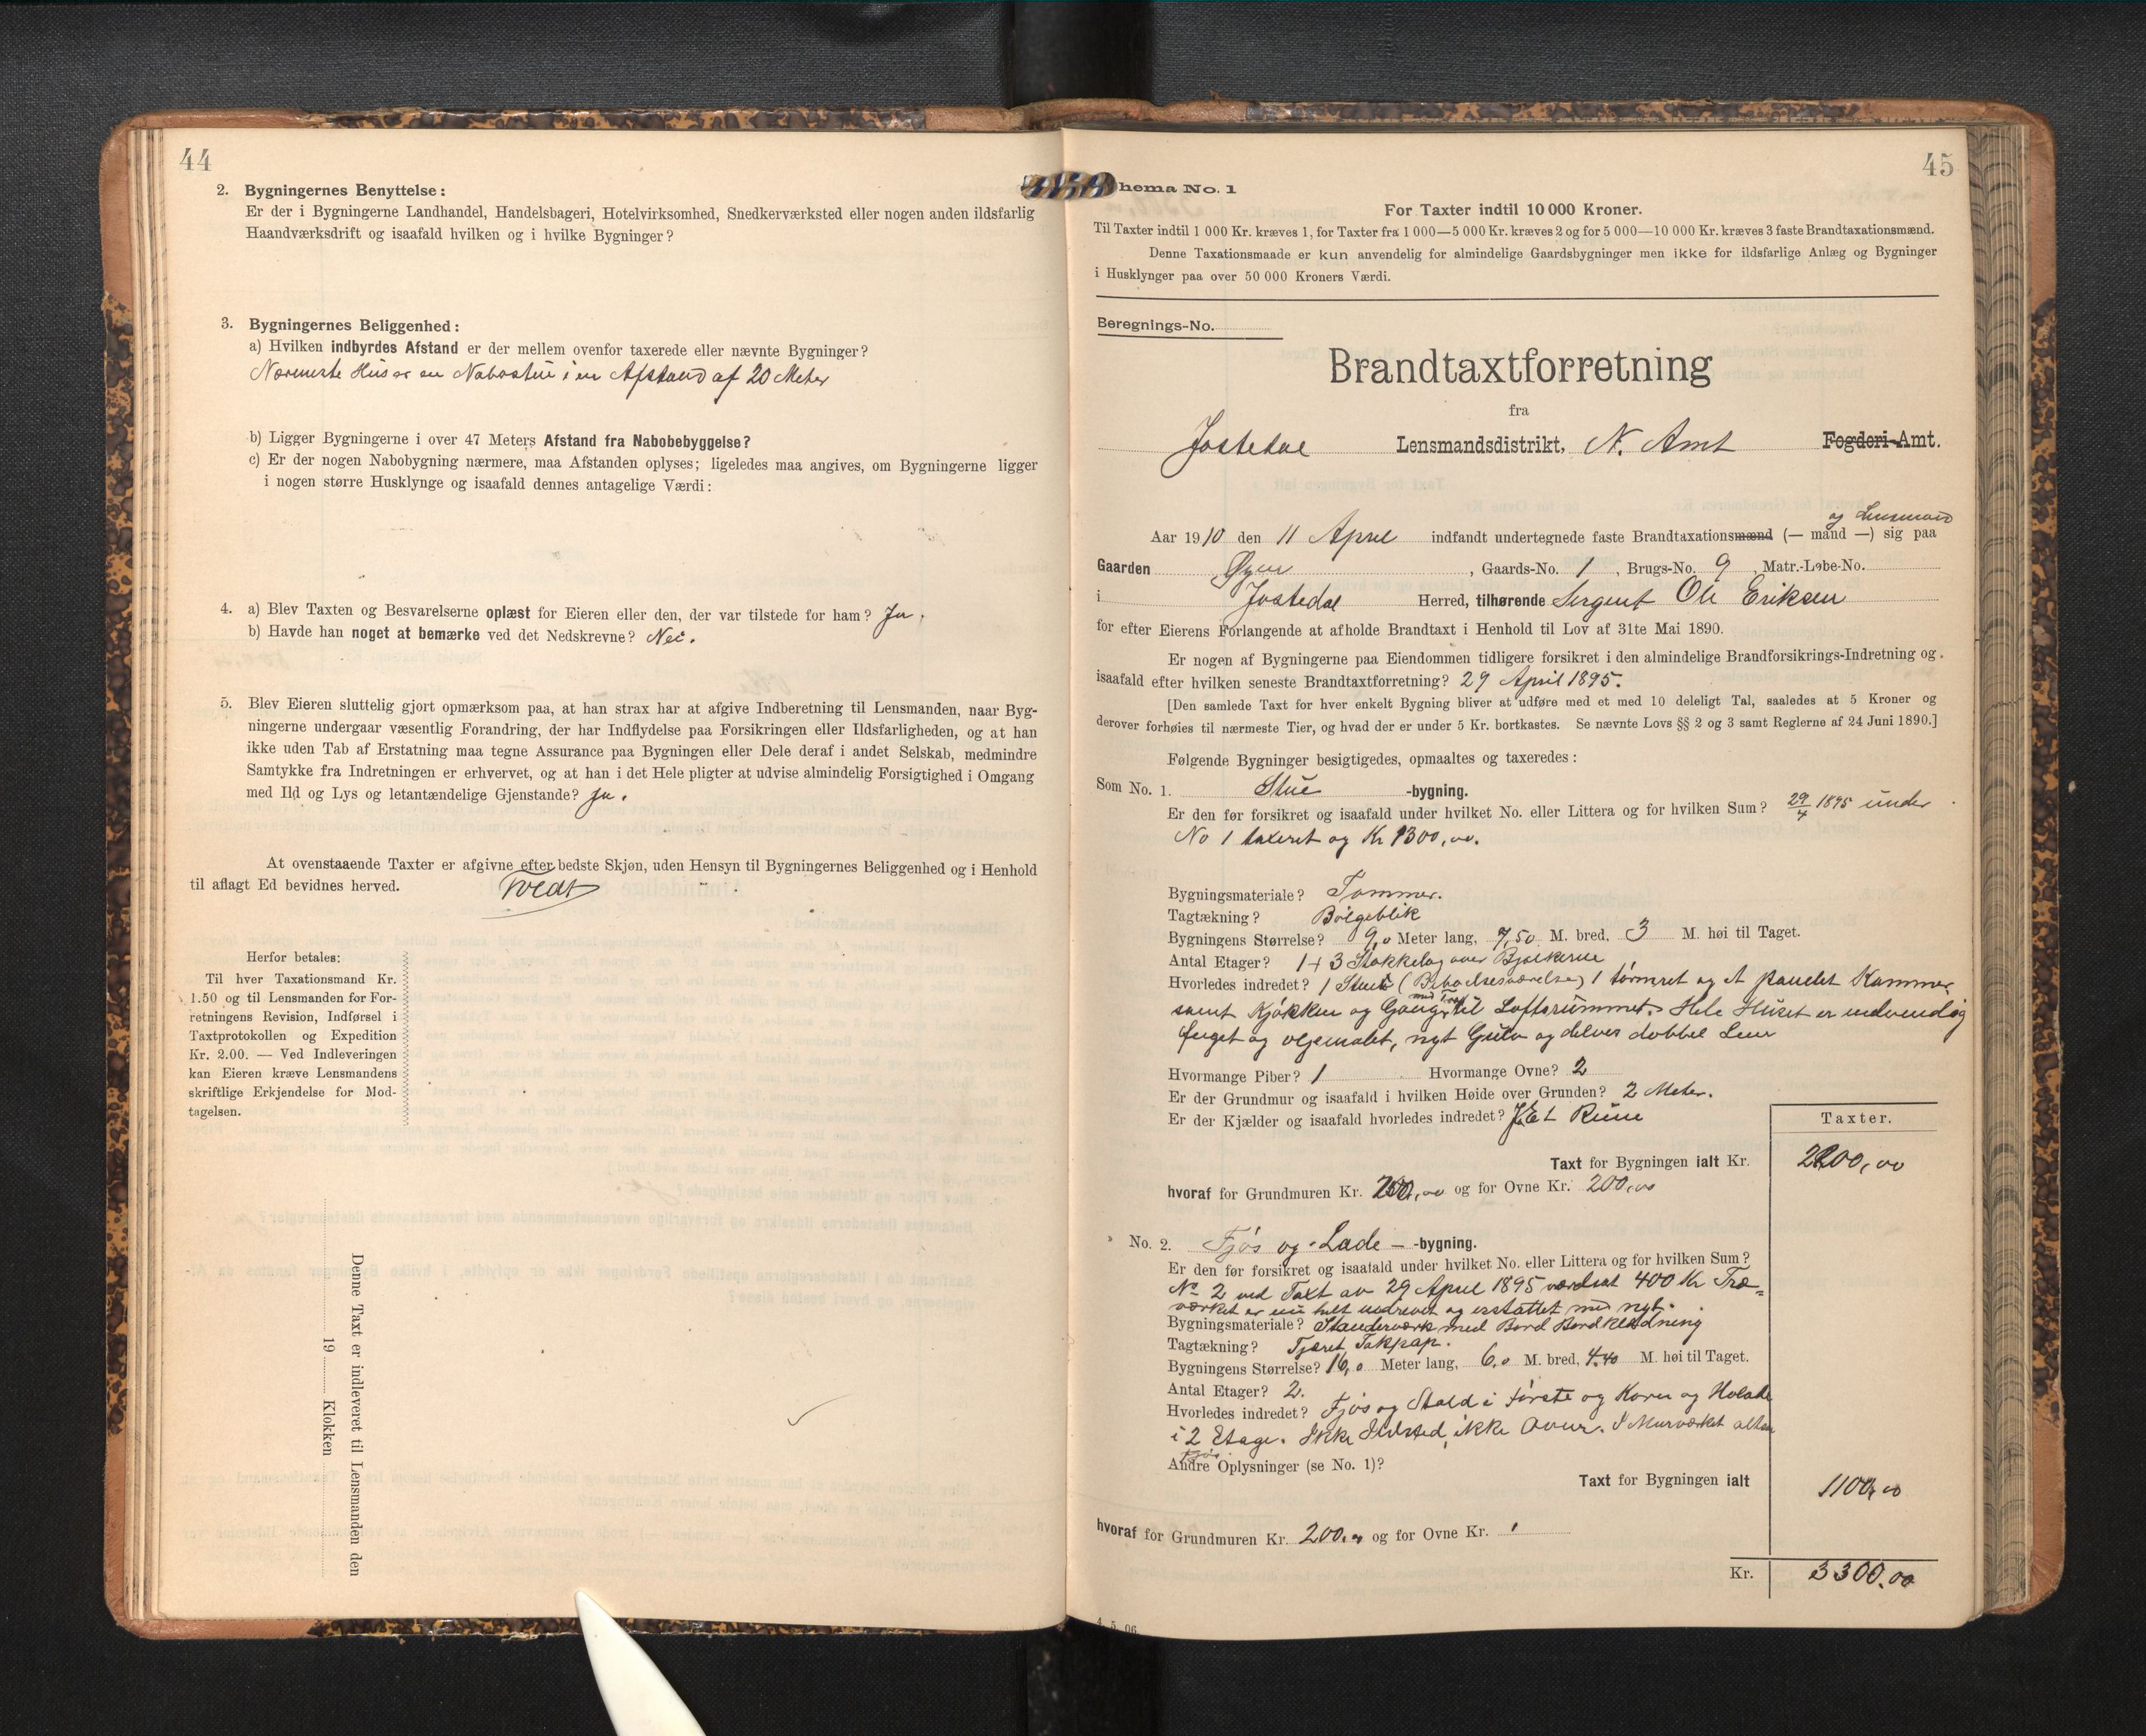 44
2. Bygningernes Benyttelse:
Er der i Bygningerne Landhandel, Handelsbageri, Hotelvirksomhed, Snedkerværksted eller nogen anden ildsfarlig
Haandværksdrift og isaafald hvilken og i hvilke Bygninger?
3. Bygningernes Beliggenhed:
a) Hvilken indbyrdes Afstand er der mellem ovenfor taxerede eller nævnte Bygninger?
Nærmeste Hus er en Nabostue i en Afstand af 20 Meter
b) Ligger Bygningerne i over 47 Meters Afstand fra Nabobebyggelse?
c) Er der nogen Nabobygning nærmere, maa Afstanden oplyses; ligeledes maa angives, om Bygningerne ligger
i nogen større Husklynge og isaafald dennes antagelige Værdi:
4. a) Blev Taxten og Besvarelserne oplæst for Eieren eller den, der var tilstede for ham? Ja.
b) Havde han noget at bemærke ved det Nedskrevne? Nei.
5. Blev Eieren sluttelig gjort opmærksom paa, at han strax har at afgive Indberetning til Lensmanden, naar Byg-
ningerne undergaar væsentlig Forandring, der har Indflydelse paa Forsikringen eller Ildsfarligheden, og at han
ikke uden Tab af Erstatning maa tegne Assurance paa Bygningen eller Dele deraf i andet Selskab, medmindre
Samtykke fra Indretningen er erhvervet, og at han i det Hele pligter at udvise almindelig Forsigtighed i Omgang
med Ild og Lys og letantændelige Gjenstande? Ja.
At ovenstaaende Taxter er afgivne efter bedste Skjøn, uden Hensyn til Bygningernes Beliggenhed og i Henhold
til aflagt Ed bevidnes herved.
Herfor betales:
Til hver Taxationsmand Kr.
1.50 og til Lensmanden før For-
retningens Revision, Indførsel i
Taxtprotokollen og Expedition
Kr. 2.00. — Ved Indleveringen
kan Eieren kræve Lensmandens
skriftlige Erkjendelse for Mod-
tagelsen.
Denne Taxt er indleveret til Lensmanden den
19 Klokken
45
hema No. 1
For Taxter indtil 10 000 Kroner.
Til Taxter indtil 1 000 Kr. kræves 1, for Taxter fra 1 000—5 000 Kr. kræves 2 og for 5 000—10 000 Kr. kræves 3 faste Brandtaxationsmænd.
Denne Taxationsmaade er kun anvendelig for almindelige Gaardsbygninger men ikke for ildsfarlige Anlæg og Bygninger
i Husklynger paa over 50 000 Kroners Værdi.
Beregnings-No.
Brandtaxtforretning
fra
Jostedal Lensmandsdistrikt, N. Amt Fogderi-Amt.
og Lensmand
Aar 1910 den 11 April indfandt undertegnede faste Brandtaxationsmænd (— mand —) sig paa
Gaarden Øyen, Gaards-No. 1, Brugs-No. 9, Matr.-Løbe-No.
i Jostedal Herred, tilhørende Sergent Ole Eriksen
for efter Eierens Forlangende at afholde Brandtaxt i Henhold til Lov af 31te Mai 1890.
Er nogen af Bygningerne paa Eiendommen tidligere forsikret i den almindelige Brandforsikrings-Indretning og
isaafald efter hvilken seneste Brandtaxtforretning? 29 April 1895.
[Den samlede Taxt for hver enkelt Bygning bliver at udføre med et med 10 deleligt Tal, saaledes at 5 Kroner og
derover forhøies til nærmeste Tier, og hvad der er under 5 Kr. bortkastes. Se nævnte Lovs §§ 2 og 3 samt Reglerne af 24 Juni 1890.]
Følgende Bygninger besigtigedes, opmaaltes og taxeredes:
Som No. 1. Stue -bygning.
Er den før forsikret og isaafald under hvilket No. eller Littera og for hvilken Sum? 29/4 1895 under
No 1 taxeret og Kr 1300,00.
Bygningsmateriale? Tømmer.
Tagtækning? Bølgeblik
Bygningens Størrelse? 9,0 Meter lang, 7,50 M. bred, 3 M. høi til Taget.
Antal Etager? 1 + 3 Stokkelag over Bjælkerne
Hvorledes indredet? 1 Stue (Beboelsesværelse) 1 tømret og et panelet Kammer
samt Kjøkken og Gang med Trap til Loftsrummet. Hele Huset er indvendig
feiet og oljemalet, nyt Gulv og delvis dobbel
Hvormange Piber? 1 Hvormange Ovne? 2
Er der Grundmur og isaafald i hvilken Høide over Grunden? 2 Meter.
Er der Kjælder og isaafald hvorledes indredet? Et Rum
Taxter.
Taxt for Bygningen ialt Kr. 2200,00
hvoraf for Grundmuren Kr. 200,00 og for Ovne Kr. 200,00
No. 2. Fjøs og Lade -bygning.
Er den før forsikret og isaafald under hvilket No. eller Littera og for hvilken Sum?
No 2 ved Taxt av 29 April 1895 værdsat 400 Kr Træ-
værket er nu helt nedrevet og erstattet med nyt.
Bygningsmateriale? Standerværk med Bord Bordklædning
Tagtækning? Tjæret Takpap.
Bygningens Størrelse? 16,0 Meter lang, 6,0 M. bred, 4.40 M. høi til Taget.
Antal Etager? 2.
Hvorledes indredet? Fjøs og Stald i første og Korn og Hølade
i 2 Etage. Ikke Ildsted, ikke Ovne. I Murværket
Fjøs
Andre Oplysninger (se No. 1)?
Taxt for Bygningen ialt 1100,00
hvoraf for Grundmuren Kr. 200.00 og for Ovne Kr.
Kr. 3300.00
4. 5. 06